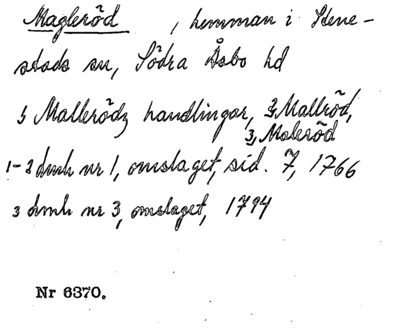 Magleröd, hemman i Stene-
stads sn, Södra Åsbo hd
3 Mallerödz handlingar, 3, Mallröd,
3, Maleröd
1-3 lmh nr 1, omslaget, sid. 7, 1766
3 lmh nr 3, omslaget, 1794
Nr 6370.